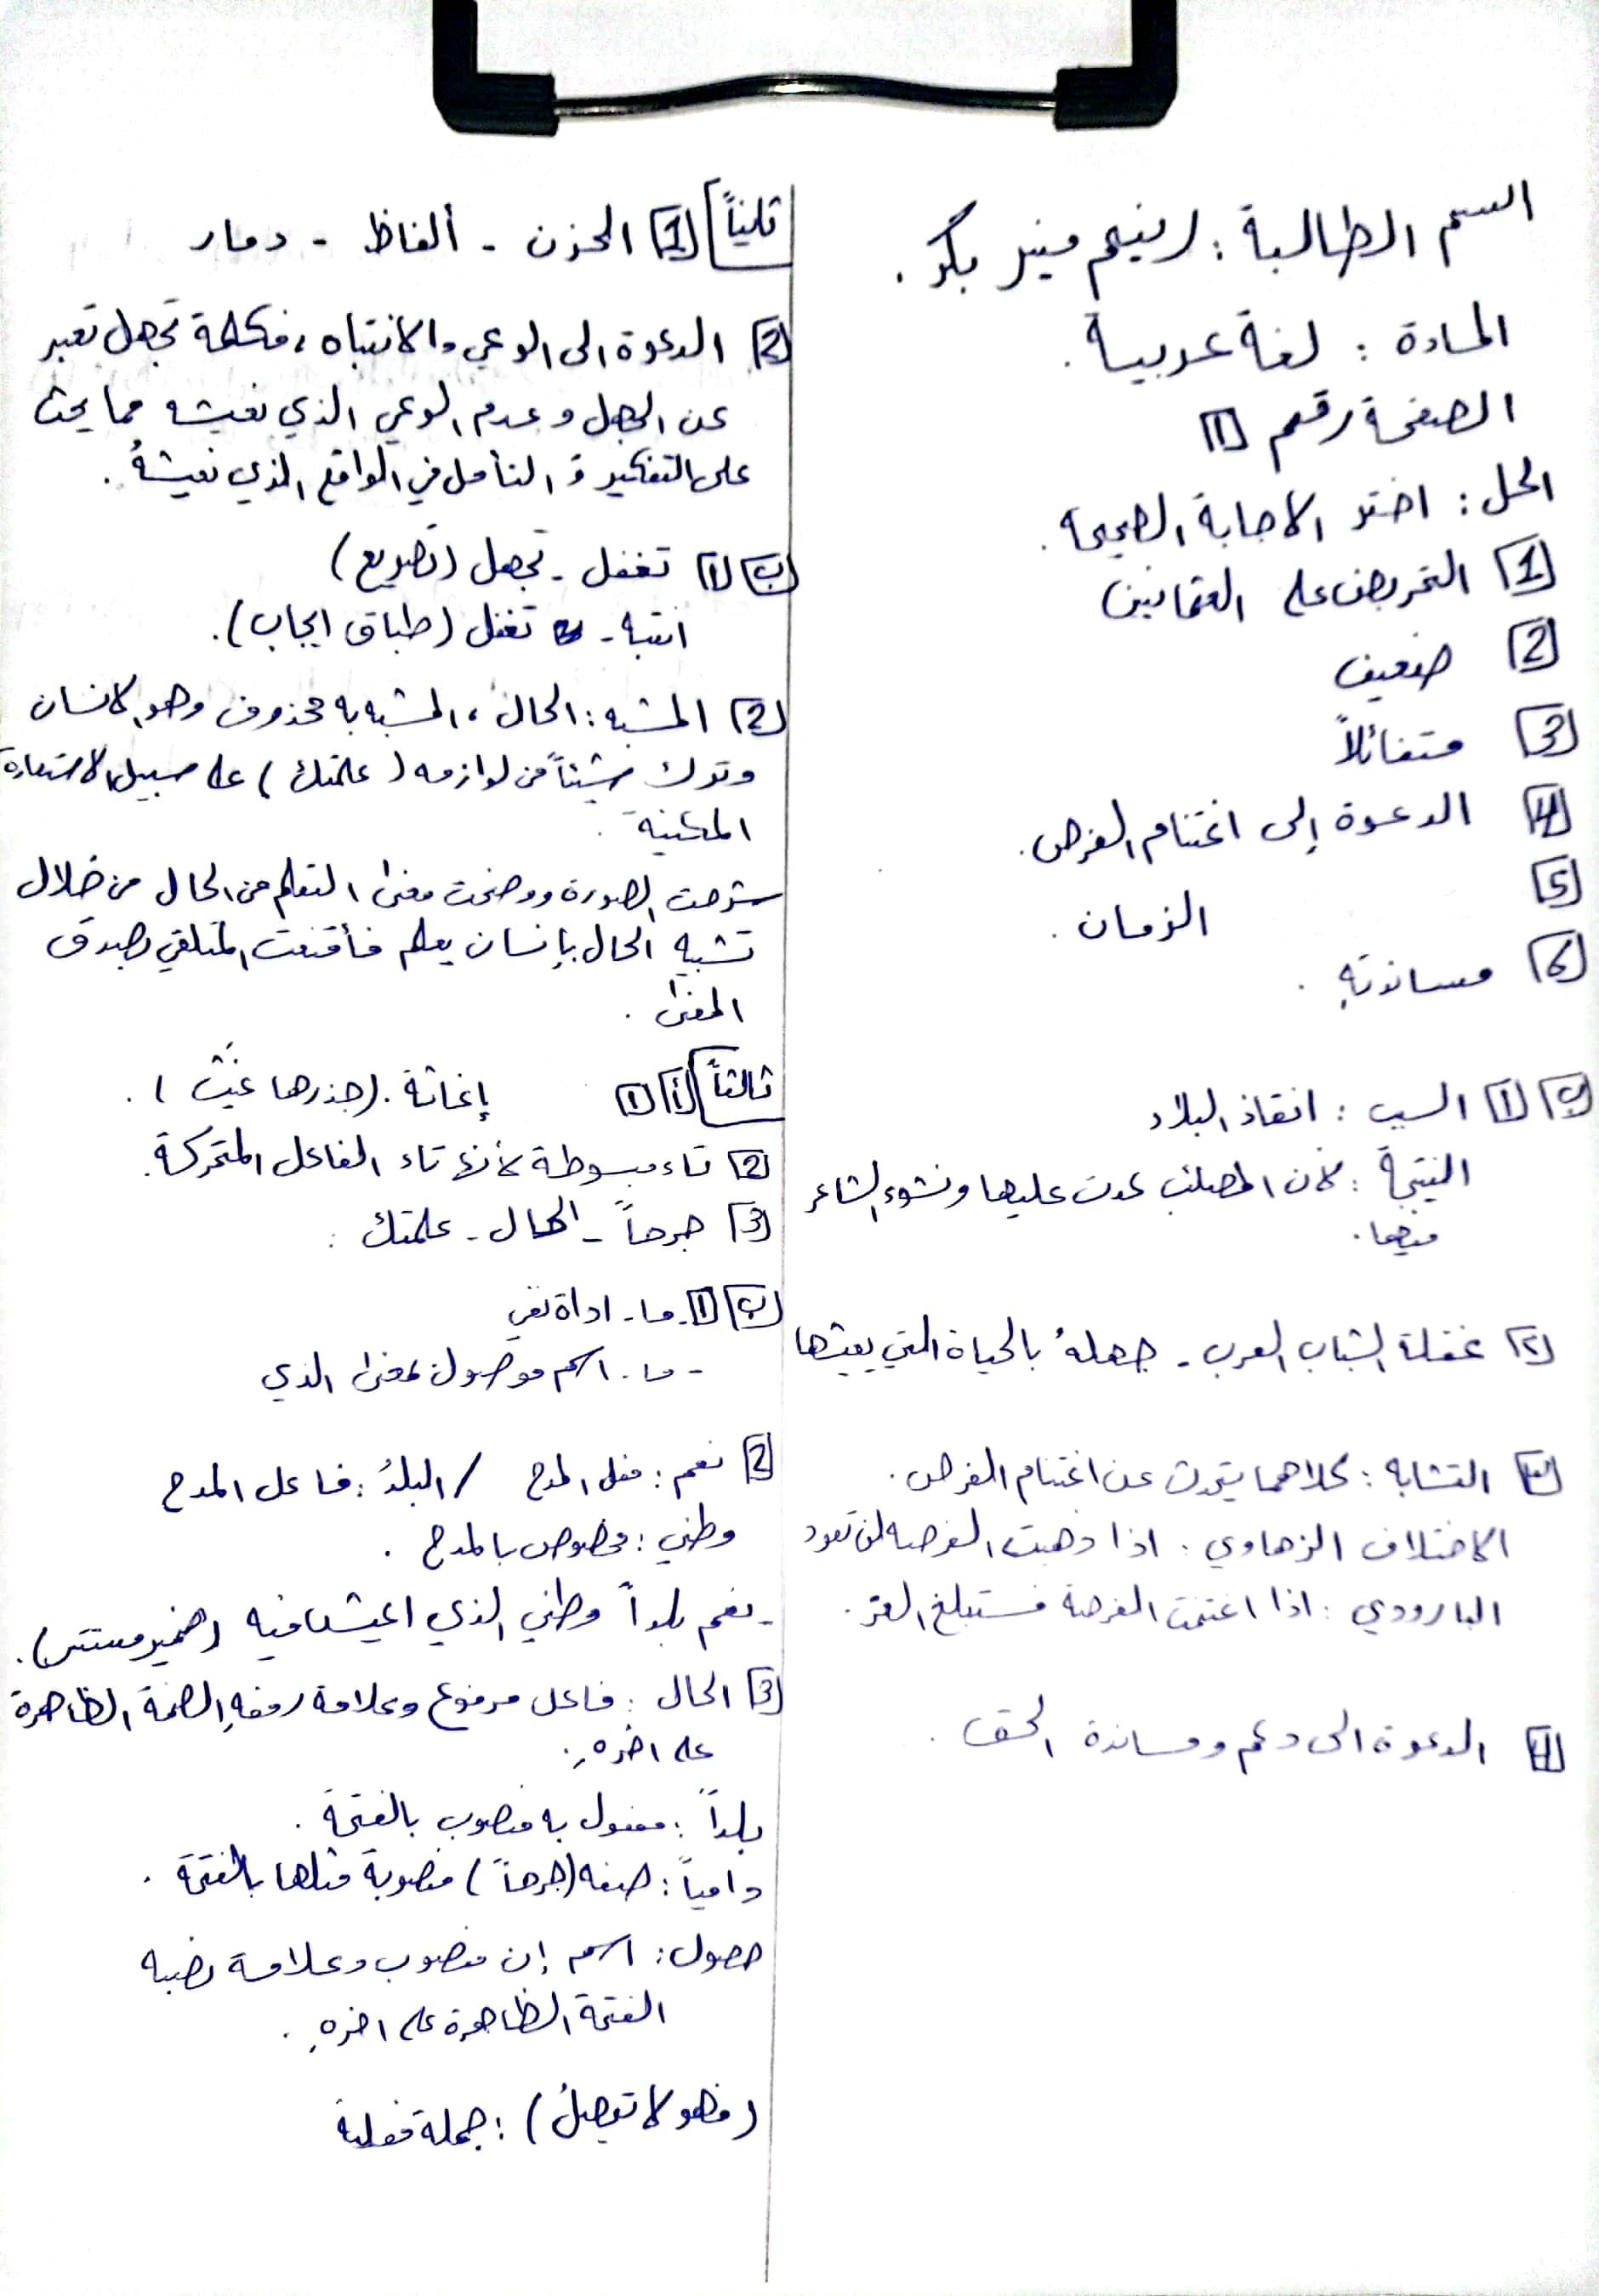 اسم الطالبة : رنيم منير بكر .
المادة : لغة عربية .
الصفحة رقم 1
الحل : اختر الاجابة الصحيحة .
1 التحريض على العثمانيين
2 ضعيف
3 متفائلاً
4 الدعوة إلى اغتنام الفرص .
5 الزمان .
6 مساندته .
ب 1 السبب : انقاذ البلاد
النتيجة : لان المصائب عدت عليها ونشوء الشاعر
فيها .
2 غفلة الشباب العرب - جهلهُ بالحياة التي يعيشها
3 التشابه : كلاهما يتحدث عن اغتنام الفرص .
الاختلاف الزهاوي : اذا ذهبت الفرصه لن تعود
البارودي : اذا اغتنمت الفرصة فستبلغ العز .
4 الدعوة الى دعم ومساندة الحق .
ثانياً 1 الحزن - ألفاظ - دمار
2 الدعوة الى الوعي والانتباه ، فكلمة تجهل تعبر
عن الجهل وعدم الوعي الذي نعيشه مما يحث
على التفكير و التأمل في الواقع الذي نعيشهُ .
ب 1 تغفل - تجهل (تصريع)
انتبه - تغفل (طباق ايجاب) .
2 المشبه : الحال ، المشبه به محذوف وهو الانسان
وترك شيئاً من لوازمه (علمتك) على سبيل الاستعارة
المكنية .
شرحت الصورة ووضحت معنى التعلم من الحال من خلال
تشبيه الحال بإنسان يعلم فأقنعت المتلقي بصدق
المعنى .
ثالثاً أ 1 إغاثة . (جذرها غيث) .
2 تاء مبسوطة لأنها تاء الفاعل المتحركة .
3 جرحاً - الحال - علمتك :
ب 1 - ما - اداة نفي
- ما . اسم موصول بمعنى الذي
2 نعم : فعل المدح / البلدُ : فاعل المدح
وطني : مخصوص بالمدح .
- نعم بلداً وطني الذي اعيش فيه (ضمير مستتر) .
3 الحال : فاعل مرفوع وعلامة رفعهِ الضمة الظاهرة
على اخرهِ .
بلداً : مفعول به منصوب بالفتحة .
دامياً : صفه (جرحاً) منصوبة مثلها بالفتحة .
حصول : اسم إن منصوب وعلامة نصبه
الفتحة الظاهرة على اخرهِ .
(فهو لا : جملة فعلية